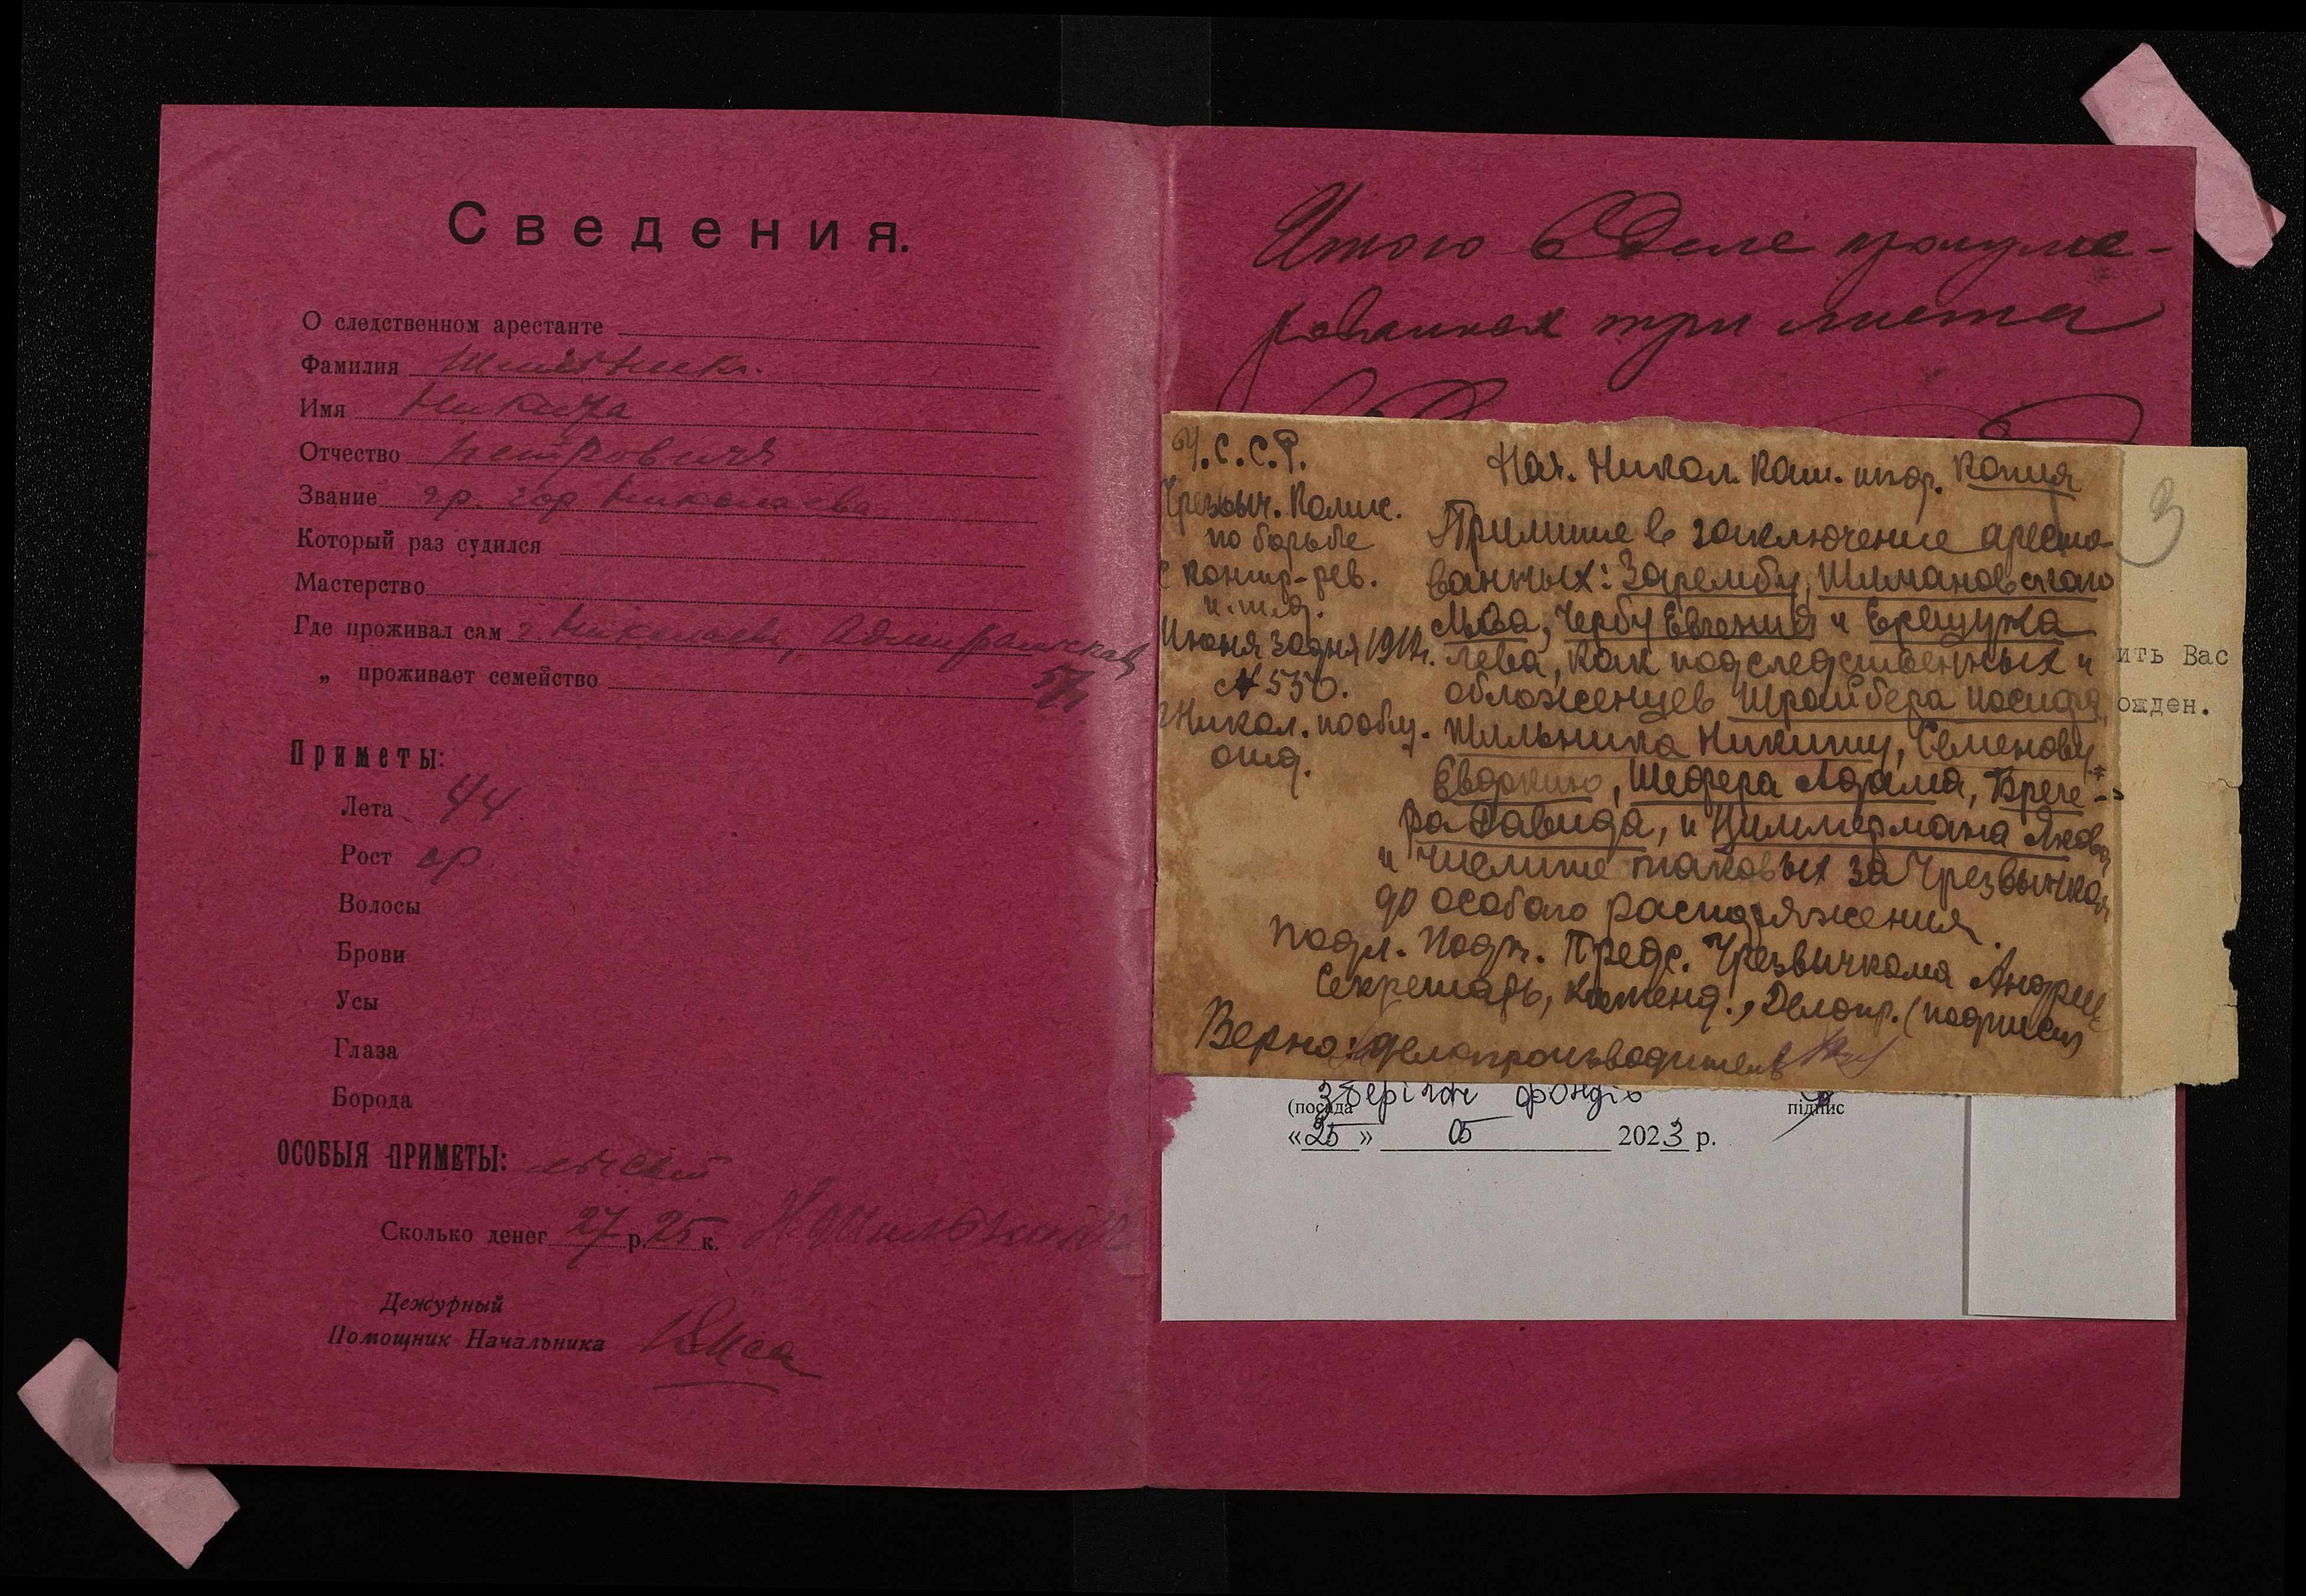 Сведения.
О следственном арестанте
Фамилия Шильник.
Имя Никита
Отчество Петрович
Звание гр. гор Николаева
Который раз судился
Мастерство
Где проживал сам г Николаев, Адмиральская
57
„ проживает семейство
Приметы:
Лета 44
Рост ср.
Волосы
Брови
Усы
Глаза
Борода
ОСОБЫЯ ПРИМЕТЫ: лысый
Сколько денег 27 р. 25 к. Н. Шильник
Дежурный
Помощник Начальника
Итого в деле пронуме-
рованных три листа
У.С.С.Р.
Чрезвыч. Комис.
по борьбе
с контр-рев.
и.т.д.
Июня 30 дня 1919г.
№ 550.
г Никол. пообм.
отд.
Нач. Никол. Кат. тюр. Копия
Примите в заключение аресто-
ванных: Зарембу, Шимановского
Льва, Чербу Евгения и Ерещука
Лева, как подследственных и
обложенцев Шрайбера Иосифа,
Шильника Никиту, Семенову
Евдокию, Шефера Адама, Бреге-
ра Давида, и Циммермана Якова
и числите таковых за Чрезвычком
до особого распоряжения.
Подл. Подп. Предс. Чрезвычкома Андрие
Секретарь, Коменд., Делопр. (подписи)
Верно: делопроизводитель
3
ить Вас
ожден.
зберігач фондів
(посада підпис
«25» 05 2023 р.